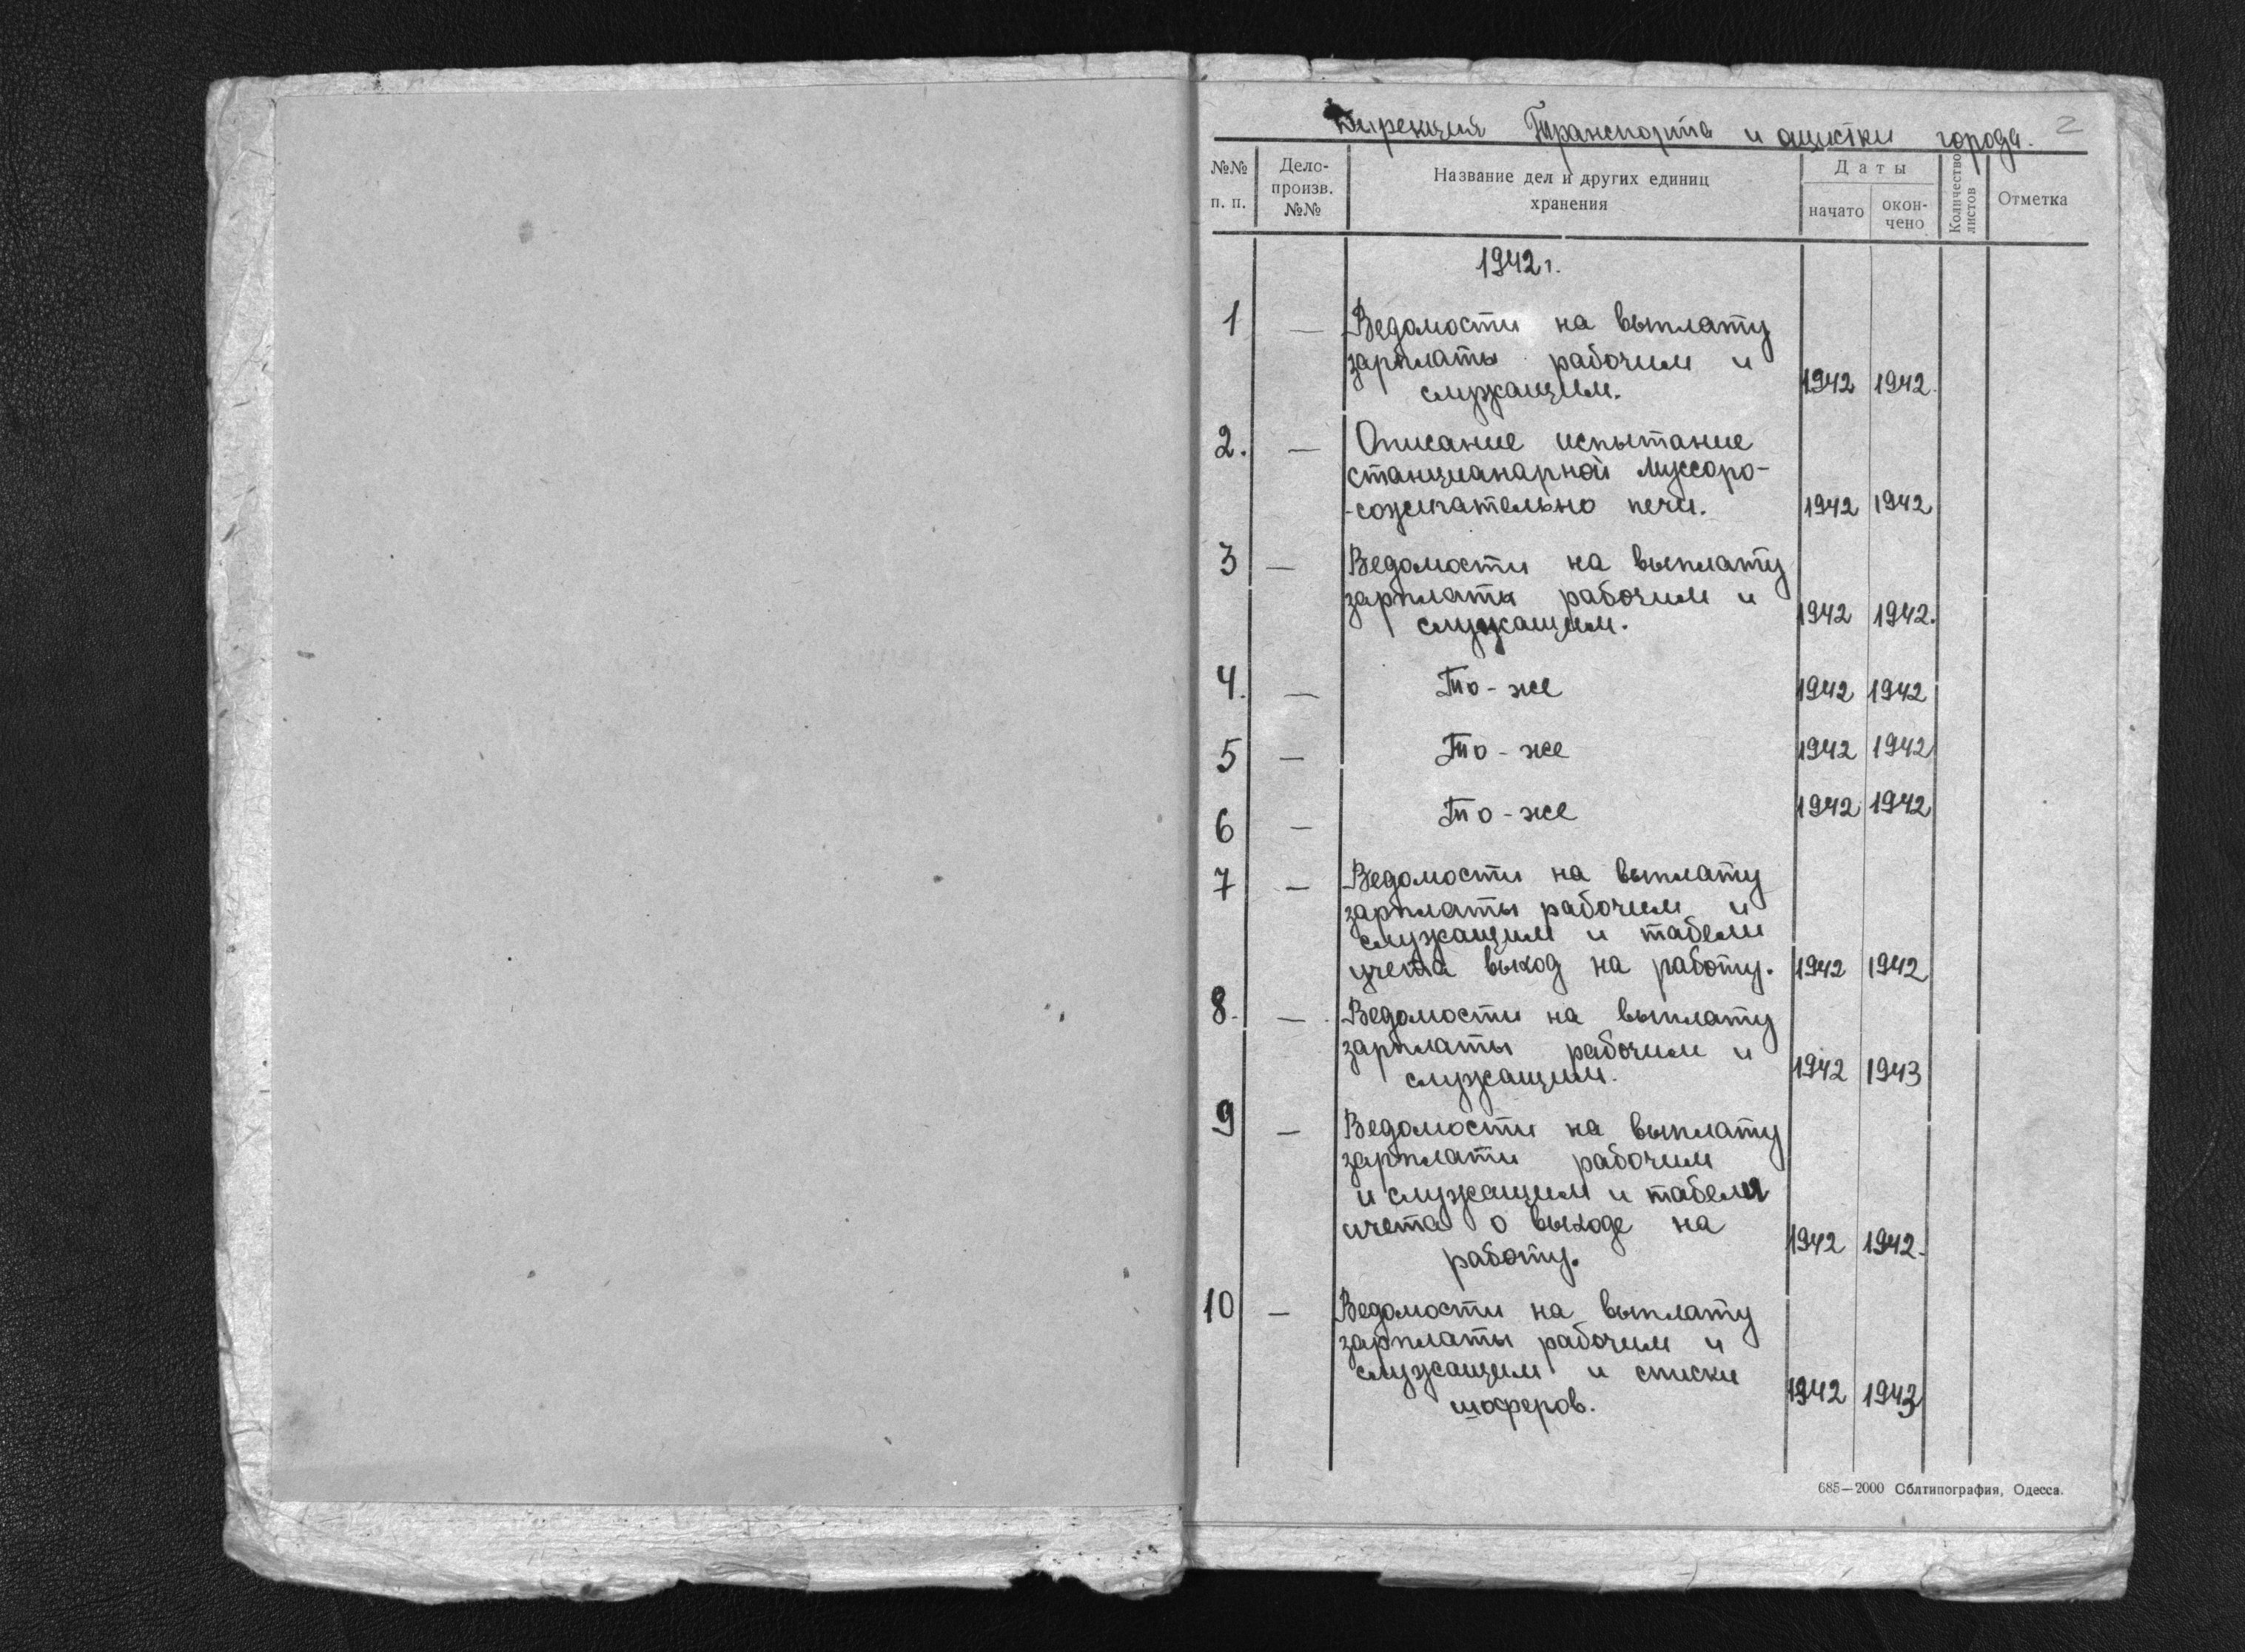 Дирекция Транспорта и очистки города. 2
№№ п. п. Дело-произв. №№ Название дел и других единиц хранения Даты начато окончено Количество листов Отметка
1942 г.
1 — Ведомости на выплату
зарплаты рабочим и
служащим. 1942 1942.
2. — Описание испытание
станцианарной муссоро-
-сожигательно печи. 1942 1942
3 — Ведомости на выплату
зарплаты рабочим и
служащим. 1942 1942.
4. — То-же 1942 1942
5 — То-же 1942 1942
6 — То-же 1942 1942
7 — Ведомости на выплату
зарплаты рабочим и
служащим и табели
учета выход на работу. 1942 1942
8. — Ведомости на выплату
зарплаты рабочим и
служащим. 1942 1943
9 — Ведомости на выплату
зарплати рабочим
и служащим и табеля
учета о выходе на
работу. 1942 1942.
10 — Ведомости на выплату
зарплаты рабочим и
служащим и списки
шоферов. 1942 1943
685—2000 Облтипография, Одесса.